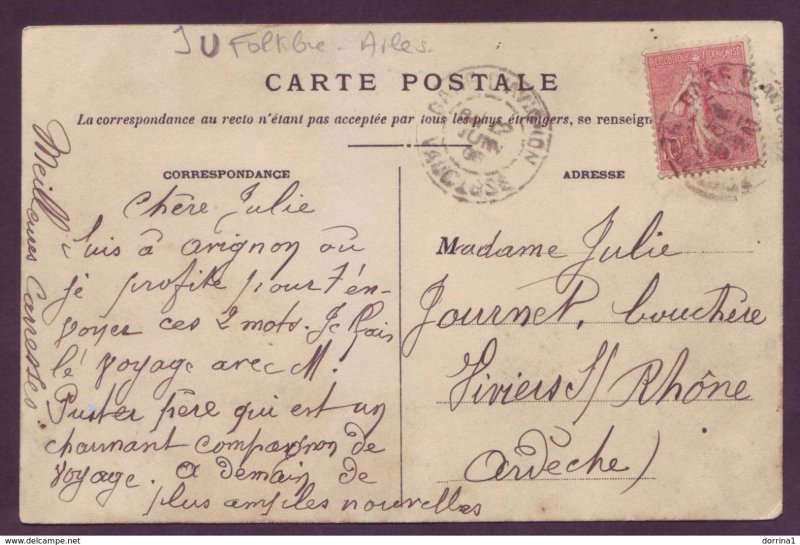 JU Folklore - Arles
CARTE POSTALE
La correspondance au recto n'étant pas acceptée par tous les pays étrangers, se renseign
CORRESPONDANCE
Chère Julie
Suis à avignon ou
je profite pour t'en-
voyer ces 2 mots. Je fais
le voyage avec M.
père qui est un
charmant compagnon de
voyage. a demain de
plus amples nouvelles
Meilleures Caresses.
ADRESSE
Madame Julie
Journet, bouchère
Viviers S/ Rhône
ardèche)
REPUBLIQUE FRANÇAISE
AVIGNON
VAUCLUSE
delcampe.net
dorrina1